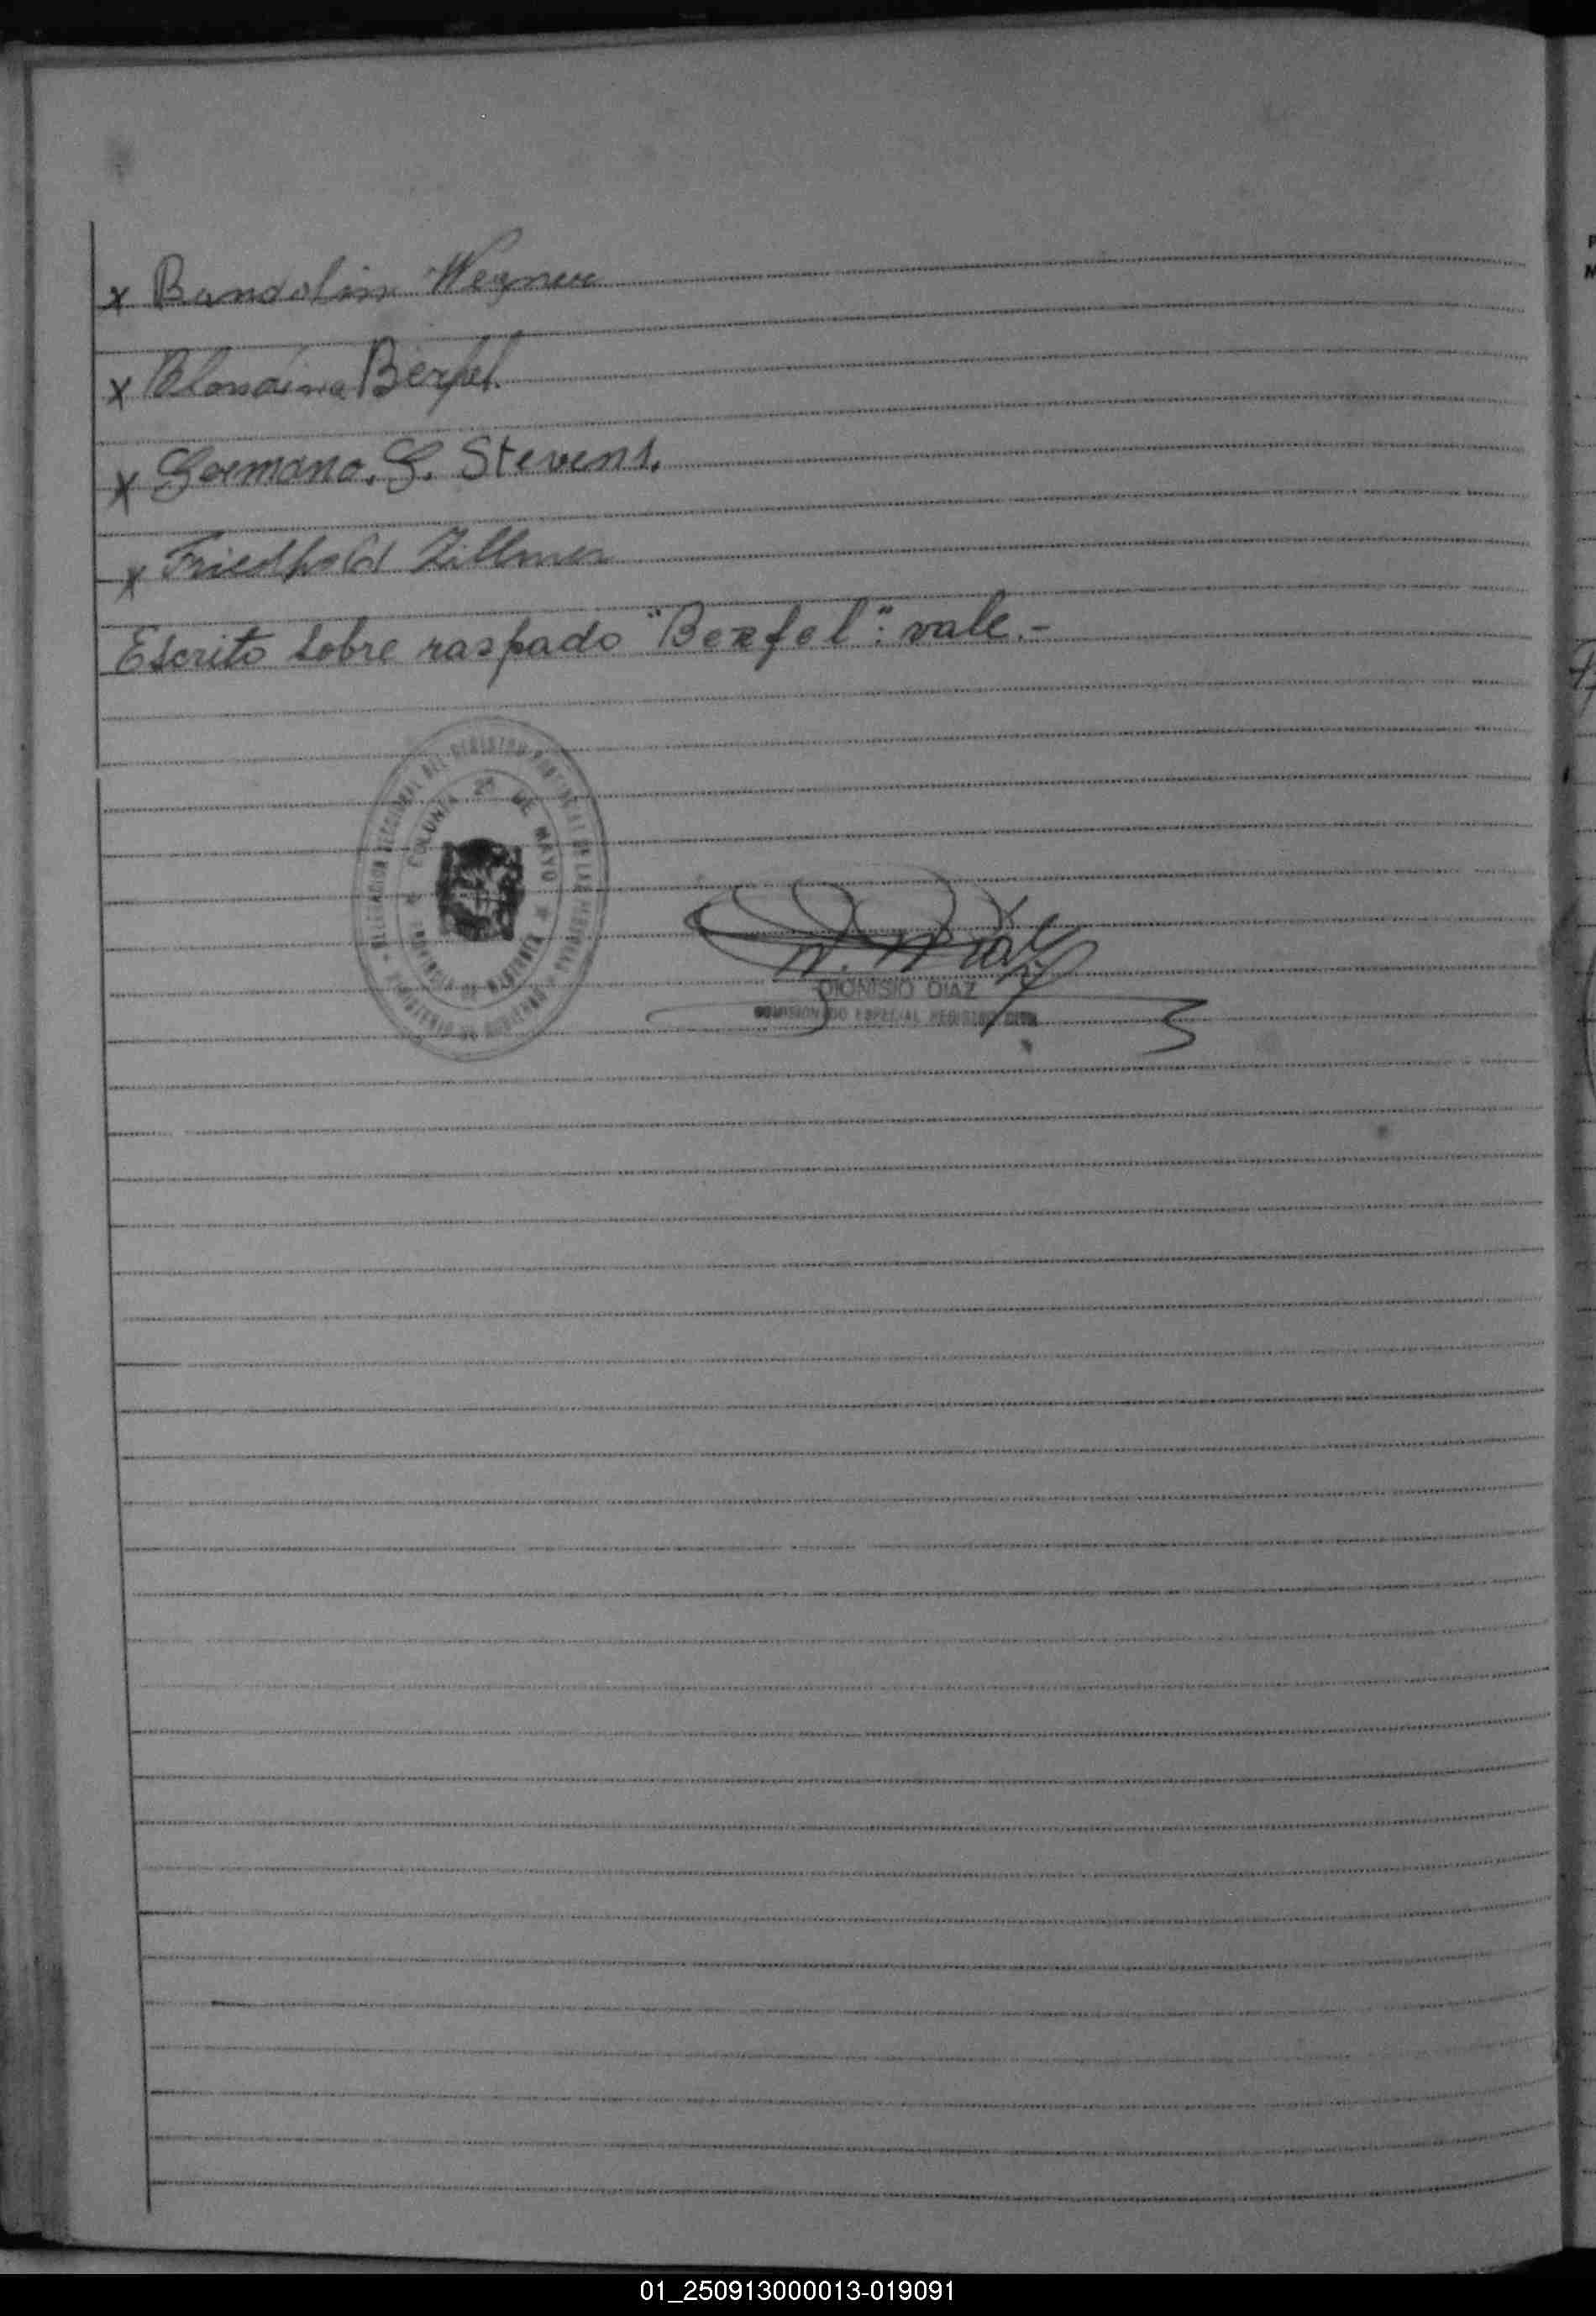 x Bandolin Wegner
x Blondina Berfel.
x Germano. G. Stevens.
x Friedhold Zillmer
Escrito sobre raspado "Berfel": vale.-
DELEGACION SECCIONAL DEL REGISTRO PROVINCIAL DE LAS PERSONAS
COLONIA 25 DE MAYO
PROVINCIA DE MISIONES
D. Diaz
DIONISIO DIAZ
COMISIONADO ESPECIAL REGISTRO CIVIL
01_250913000013-019091